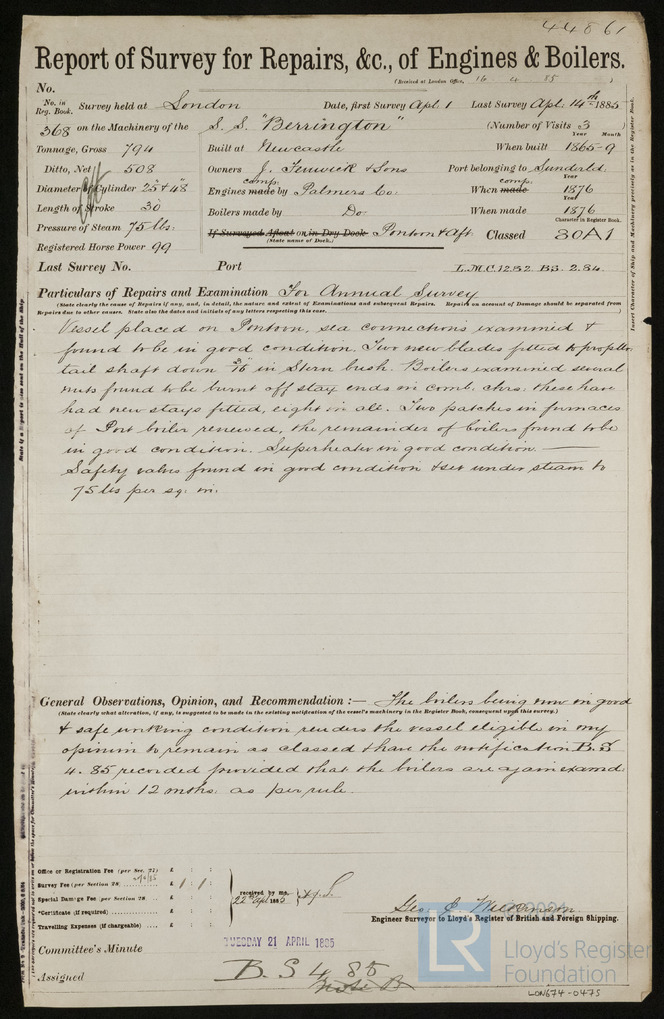 44861
Report of Survey for Repairs, &c., of Engines & Boilers.
(Received at London Office, 16 4 85 )
No.
No. in Reg. Book. Survey held at London Date, first Survey Apl. 1 Last Survey Apl. 14th 1885
368 on the Machinery of the S.S. "Berrington" (Number of Visits 3
Year Month
Tonnage, Gross 794 Built at Newcastle When built 1865-9
Ditto, Net 508 Owners J. Fenwick & Sons Port belonging to Sunderld.
Diameter of Cylinder 25" & 48" Engines comp. made by Palmers Co: When comp. made 1876
Year
Length of Stroke 30 Boilers made by Do: When made 1876
Pressure of Steam 75 lbs: If Surveyed Afloat or in Dry Dock Pontoon & Aft
(State name of Dock.)
Character in Register Book.
Classed 80A1
Registered Horse Power 99
Last Survey No. Port L.M.C. 12.82 B.S. 2.84.
Particulars of Repairs and Examination For Annual Survey
(State clearly the cause of Repairs if any, and, in detail, the nature and extent of Examinations and subsequent Repairs. Repairs on account of Damage should be separated from
Repairs due to other causes. State also the dates and initials of any letters respecting this case. )
Vessel placed on Pontoon, sea connections examined &
found to be in good condition. Two new blades fitted to propellor
tail shaft down 3/16 in Stern bush. Boilers examined several
nuts found to be burnt off stay ends in comb. chrs: these have
had new stays fitted, eight in all. Two patches in furnaces
of Port boiler renewed, the remainder of boilers found to be
in good condition. Superheater in good condition.
Safety valves found in good condition & set under steam to
75 lbs per sq. in.
General Observations, Opinion, and Recommendation :— The boilers being now in good
(State clearly what alteration, if any, is suggested to be made in the existing notification of the vessel's machinery in the Register Book, consequent upon this survey.)
& safe working condition renders the vessel eligible in my
opinion to remain as classed & have the notification B.S
4.85 recorded provided that the boilers are again examd
within 12 mths: as per rule.
Office or Registration Fee (per Sec. 27) £ : :
Survey Fee (per Section 28) £ 1 : 1 :
Special Damage Fee (per Section 28 £ : :
*Certificate (if required) £ : :
Travelling Expenses (if chargeable) £ : :
received by me,
22nd Apl. 1885
Engineer Surveyor to Lloyd's Register of British and Foreign Shipping.
Committee's Minute TUESDAY 21 APRIL 1885
Assigned B.S 4.85
LR
Lloyd's Register
Foundation
LON674-0475
Insert Character of Ship and Machinery precisely as in the Register Book.